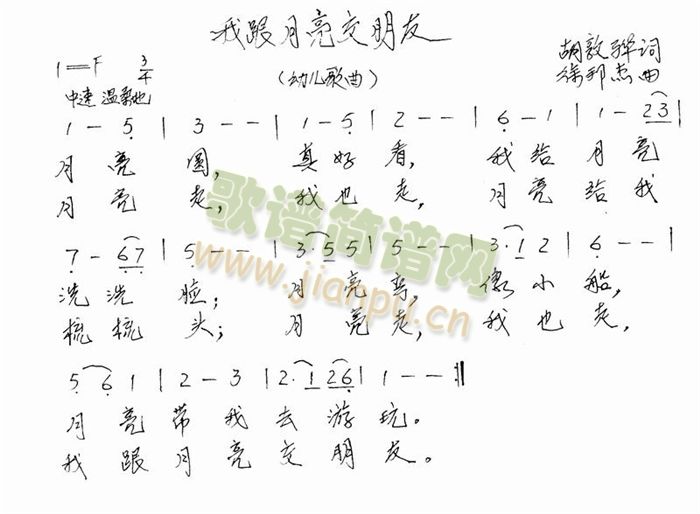 我跟月亮交朋友
(幼儿歌曲)
1=F 3/4
胡敦骅词
徐邦杰曲
中速 温柔地
1 - 5̣ | 3 - - | 1 - 5̣ | 2 - - | 6̣ - 1 | 1 - 2 3 |
月亮 圆, 真好看, 我给月亮
月亮 走, 我也走, 月亮给我
7̣ - 6̣ 7̣ | 5̣ - - | 3 · 5 5 | 5 - - | 3 · 1 2 | 6̣ - - |
洗洗 脸; 月亮弯, 像小船,
梳梳 头; 月亮走, 我也走,
5̣ 6̣ 1 | 2 - 3 | 2 · 1 2 6̣ | 1 - - :||
月亮带我去游玩。
我跟月亮交朋友。
歌谱简谱网
www.jianpu.cn